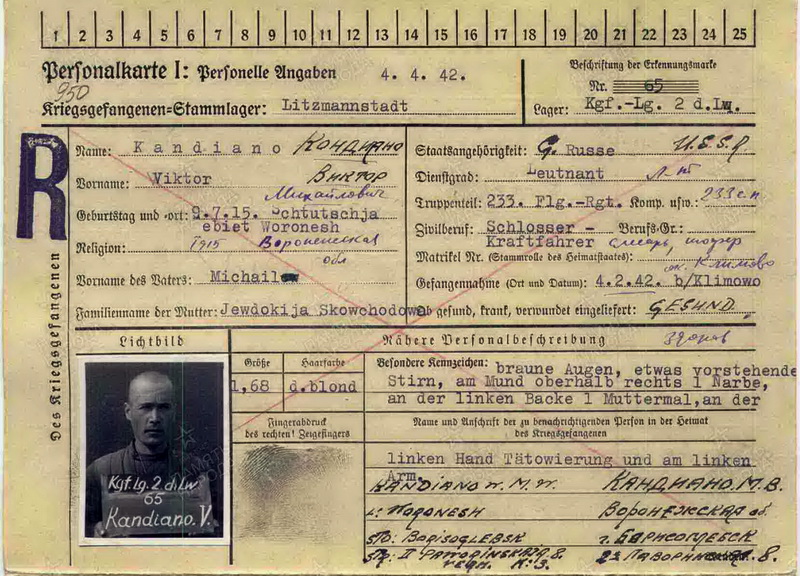 1 2 3 4 5 6 7 8 9 10 11 12 13 14 15 16 17 18 19 20 21 22 23 24 25
Personalkarte I: Personelle Angaben 4. 4. 42.
350
Kriegsgefangenen=Stammlager: Litzmannstadt
Beschriftung der Erkennungsmarke
Nr. 65
Lager: Kgf.-Lg. 2 d.Lw.
R
Des Kriegsgefangenen
Name: Kandiano КОНДИАНО
Vorname: Viktor ВИКТОР
Михайлович
Geburtstag und =ort: 9.7.15.
ebiet Woronesh
1915 Воронежская
обл
Religion:
Vorname des Vaters: Michail
Familienname der Mutter: Jewdokija Skowchodowa
Staatsangehörigkeit: Russe U.S.S.R
Dienstgrad: Leutnant Л-т
Truppenteil: 233. Flg.-Rgt. Komp. usw.: 233 с.п
Zivilberuf: Schlosser - Berufs-Gr.:
Kraftfahrer слесарь, шофер
Matrikel Nr. (Stammrolle des Heimatstaates):
ок. Климово
Gefangennahme (Ort und Datum): 4.2.42. b/Klimowo
Ob gesund, krank, verwundet eingeliefert: GESUND.
здоров
Lichtbild
Kgf.Lg.2 d.Lw.
65
Kandiano.V.
Größe
1,68
Haarfarbe
d.blond
Fingerabdruck
des rechten! Zeigefingers
Nähere Personalbeschreibung
Besondere Kennzeichen: braune Augen, etwas vorstehende
Stirn, am Mund oberhalb rechts 1 Narbe,
an der linken Backe 1 Muttermal,an der
Name und Anschrift der zu benachrichtigenden Person in der Heimat
des Kriegsgefangenen
linken Hand Tätowierung und am linken
Arm.
KANDIANO КАНДИАНО. М.В.
WORONESH ВОРОНЕЖСКАЯ об.
BORISOGLEBSK г. БОРИСОГЛЕБСК
8.